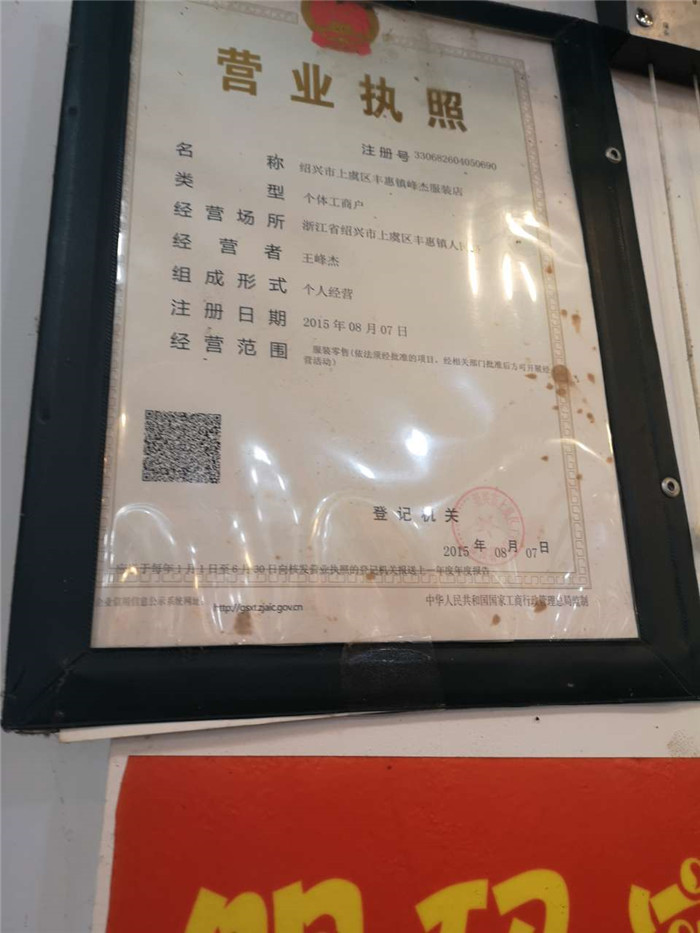 营业执照
注册号 330682604050690
名称 绍兴市上虞区丰惠镇峰杰服装店
类型 个体工商户
经营场所 浙江省绍兴市上虞区丰惠镇人
经营者 王峰杰
组成形式 个人经营
注册日期 2015年08月07日
经营范围 服装零售(依法须经批准的项目，经相关部门批准后方可开展经
营活动)
登记机关
2015年08月07日
于每年1月1日至6月30日向核发营业执照的登记机关报送上一年度年度报告
企业信用信息公示系统网址: http://gsxt.zjaic.gov.cn
中华人民共和国国家工商行政管理总局监制